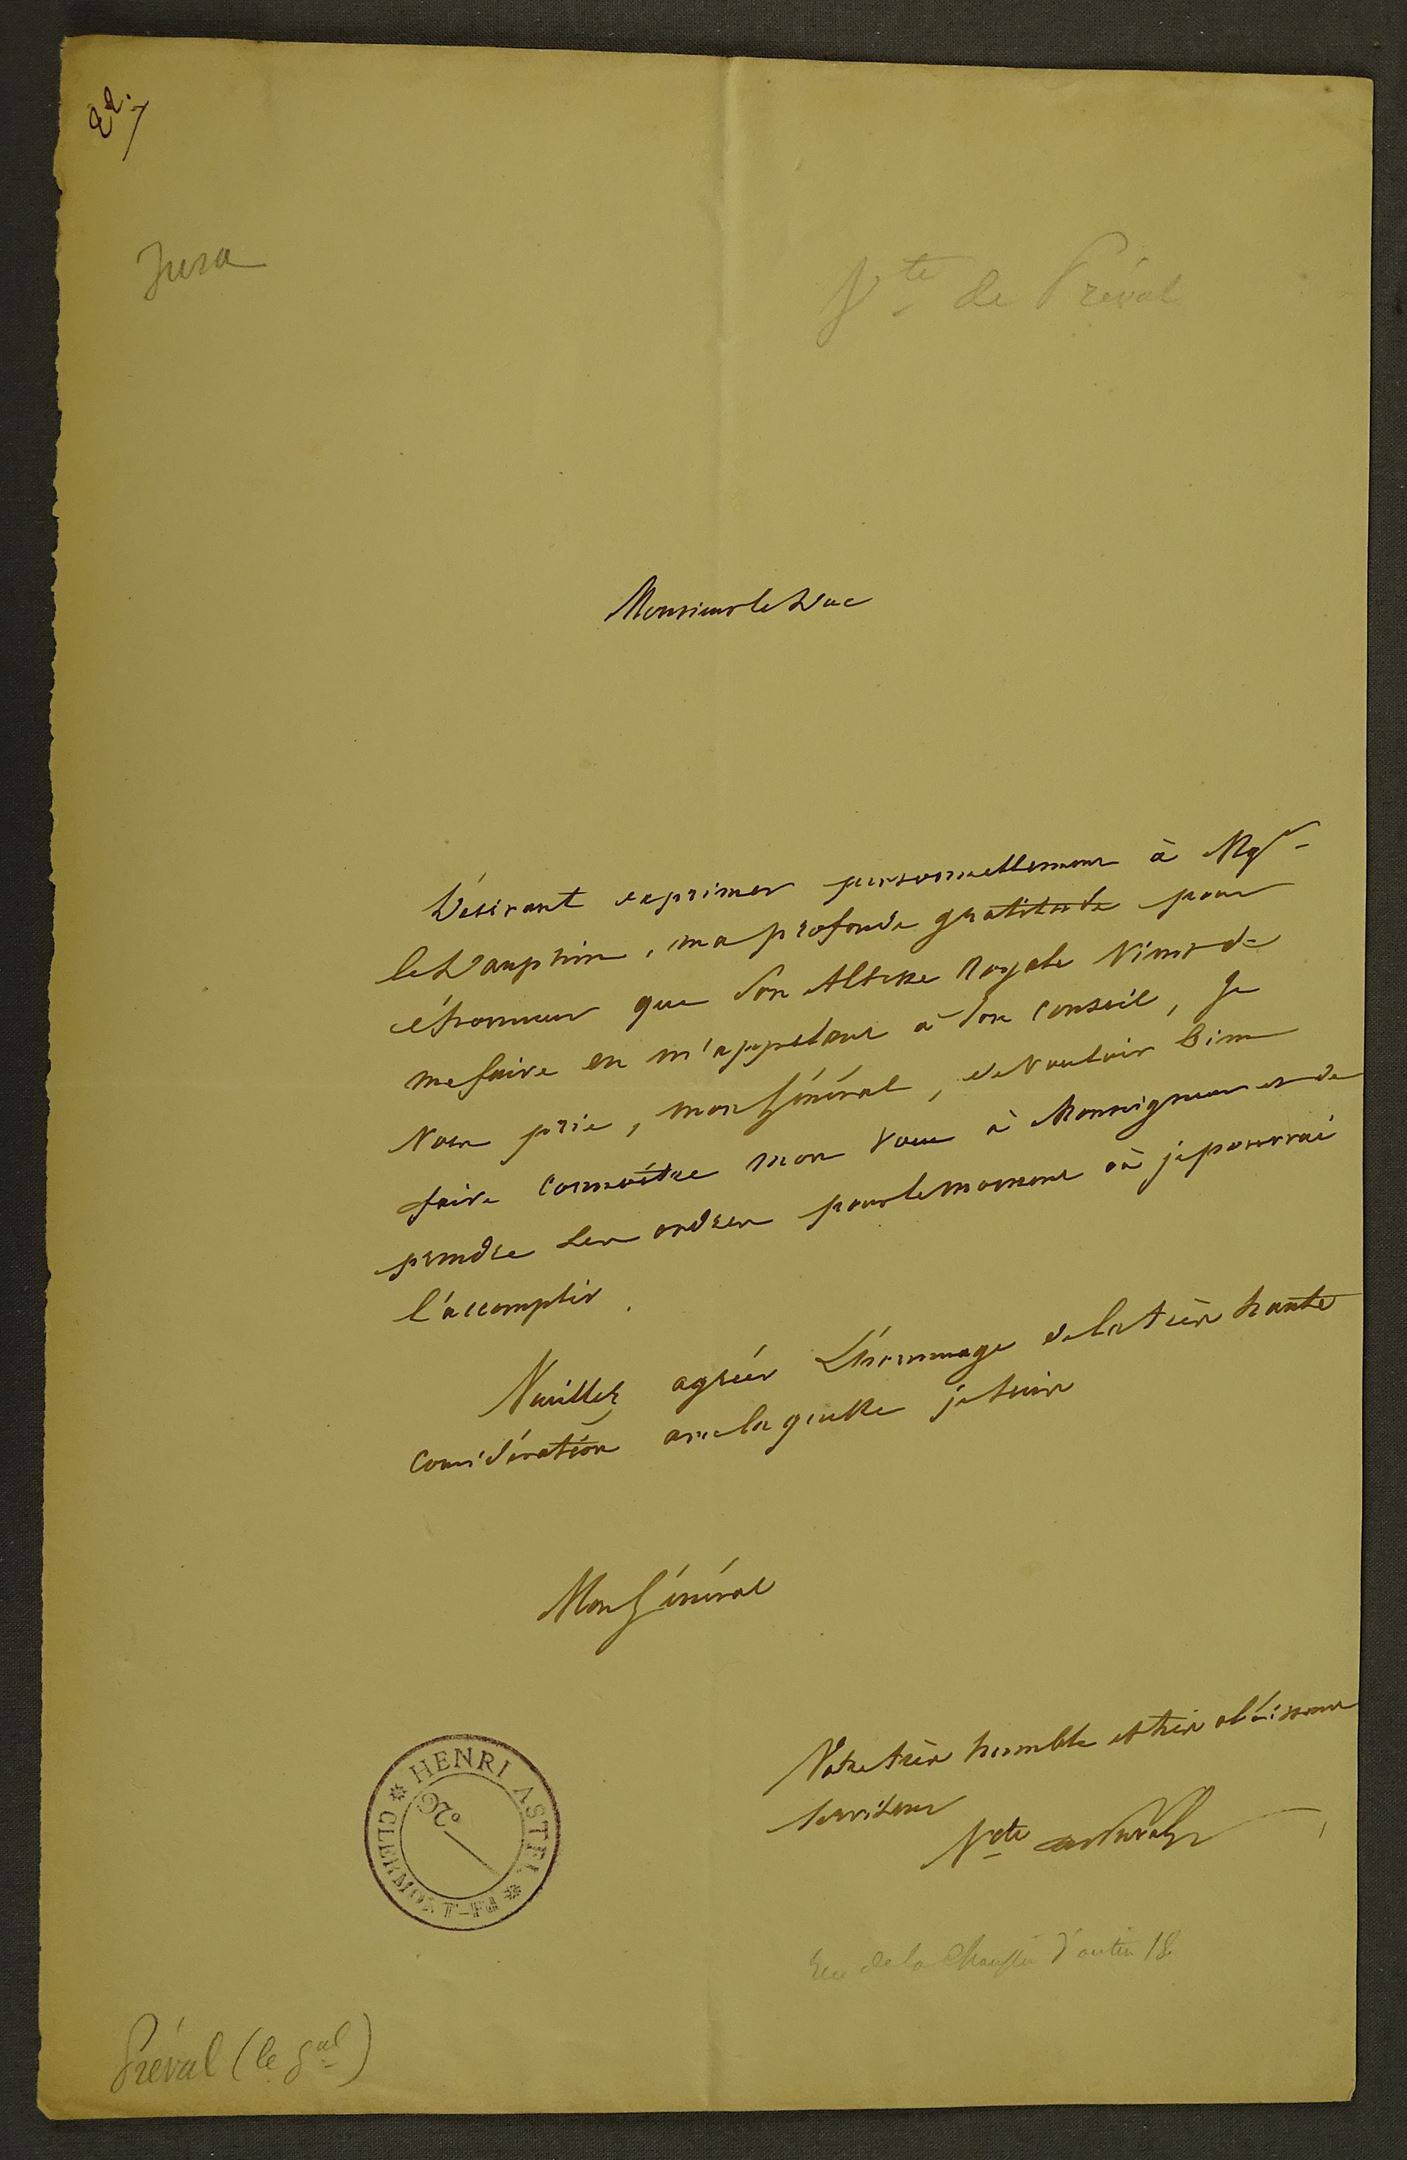 22.
Jura
Vte de Préval
Monsieur le Duc
Désirant exprimer personnellement à Mgr
le Dauphin, ma profonde gratitude pour
l'honneur que Son Altesse Royale vient de
me faire en m'appelant à son Conseil, Je
vous prie, mon Général, de vouloir bien
faire connoître mon voeu à Monseigneur et de
prendre ses ordres pour le moment où je pourrai
l'accomplir.
Veuillez agréer L'hommage de la très haute
considération avec laquelle je suis
Mon Général
Votre très humble et très obéissant
serviteur
Vte de Préval
HENRI ASTEL
CLERMONT-Fd
No.
Rue de la Chaussée d'antin 18.
Préval (le Gal)